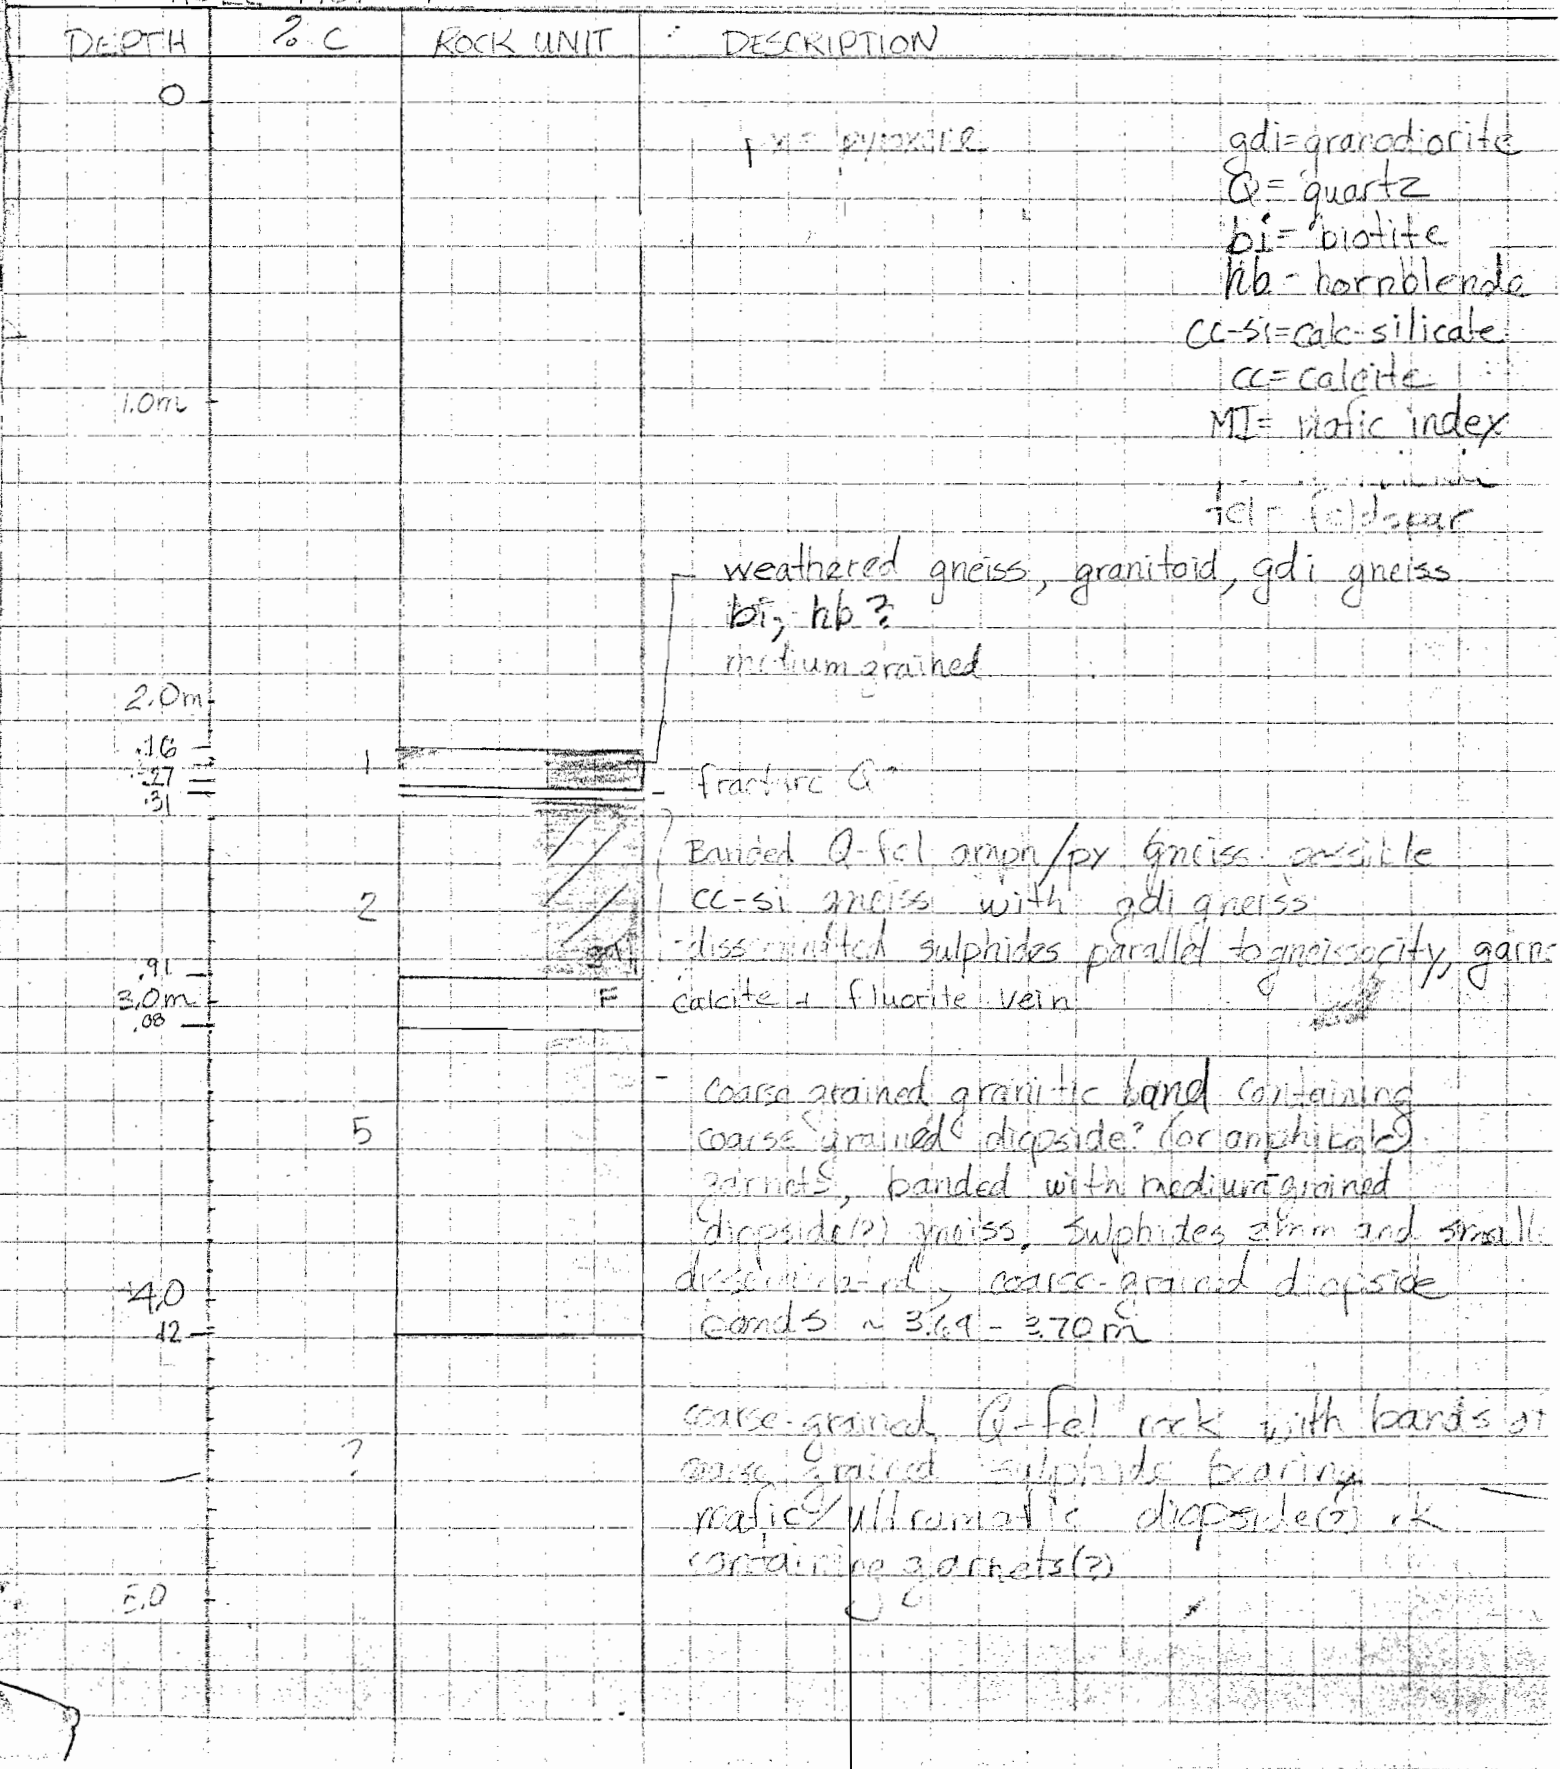 DEPTH % C ROCK UNIT DESCRIPTION
0
px = pyroxene
gdi=granodiorite
Q = quartz
bi= biotite
hb - hornblende
cc-si=calc-silicate
cc= calcite
1.0m
MI= mafic index
fel - feldspar
weathered gneiss, granitoid, gdi gneiss
bi, hb?
medium grained
2.0m
.16
1
.27
fracture Q?
.31
Banded Q-fel amph/py gneiss possible
2
cc-si gneiss with gdi gneiss
gdi
-disseminated sulphides parallel to gneissocity, garne
.91
3.0m
F
calcite + fluorite vein
.08
- coarse grained granitic band containing
5
coarse grained diopside? (or amphibole)
garnets, banded with medium-grained
diopside(?) gneiss. Sulphides 2mm and small
4.0
disseminated, coarse-grained diopside
.12
bands ~ 3.69 - 3.70m
coarse-grained Q-fel rock with bands of
?
coarse grained sulphide bearing
mafic/ultramafic diopside(?) rk
containing garnets(?)
5.0